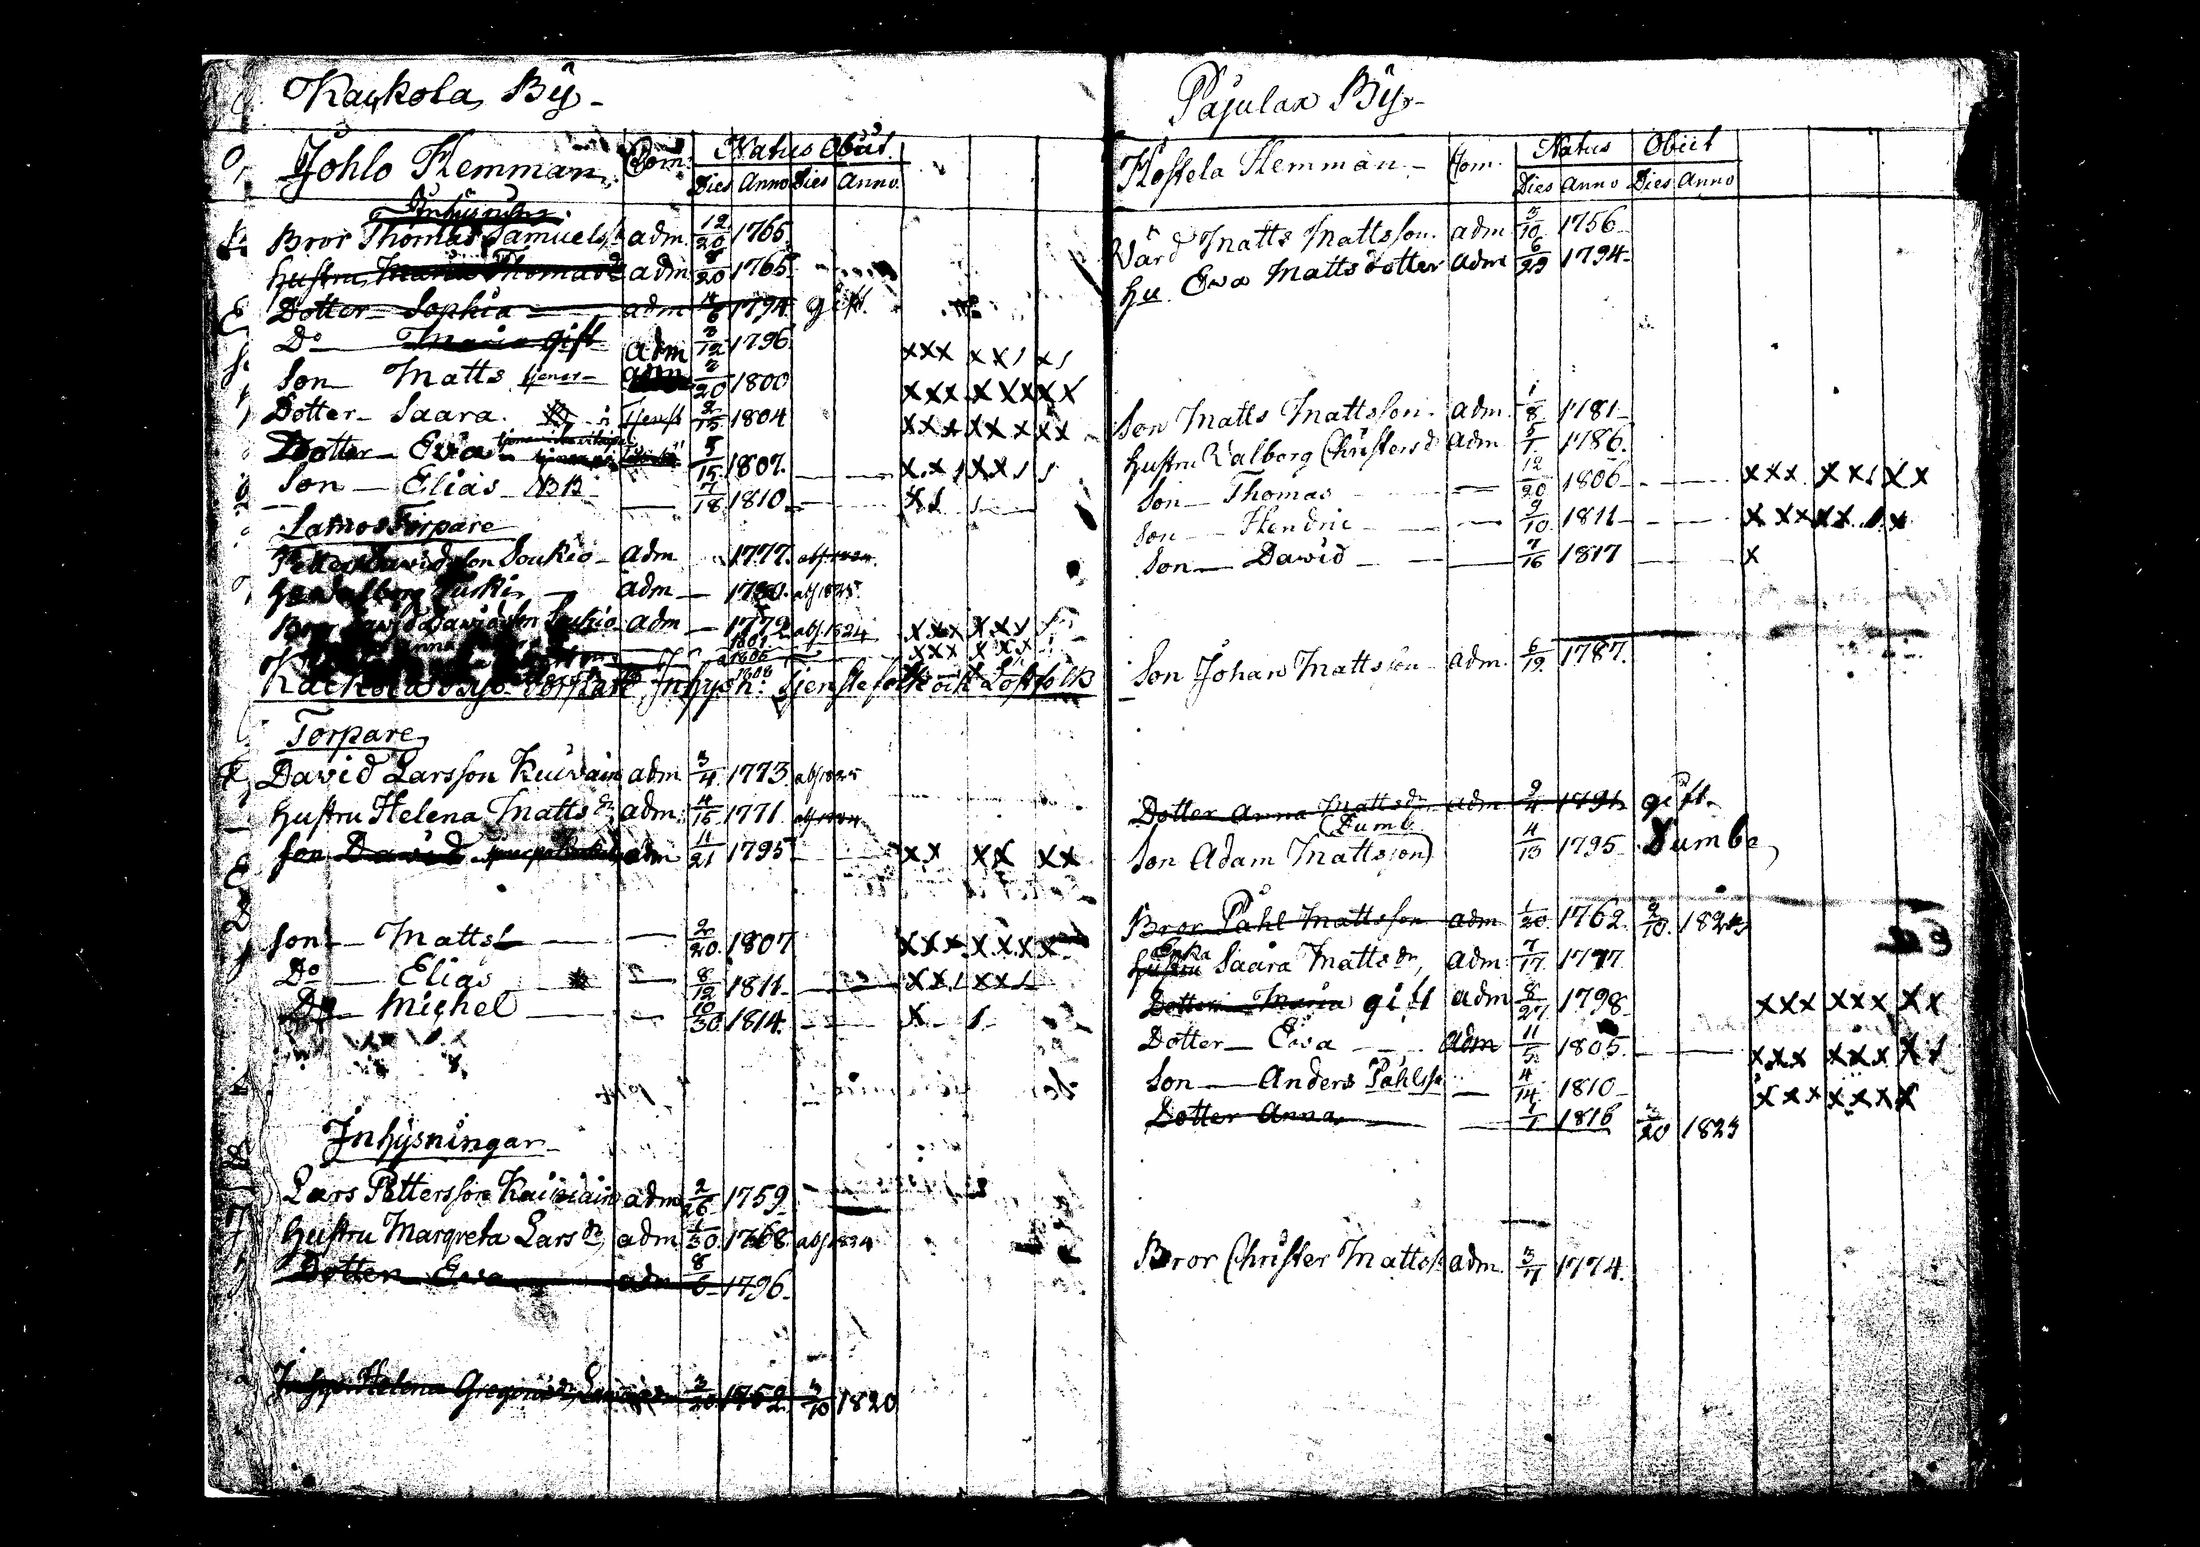 Kackola By -
Johlo Hemman Com: Natus Obiit.
Dies Anno Dies Anno
Inhysning
Bror Thomas Samuelss: adm. 12/20 1765
hustru Maria Thomasd: adm 8/20 1765
Dotter Sophia adm 1794 gift.
Do Maria gift adm 3/12 1796 xxx xx1 x1
Son Matts tjenar 2/20 1800 xxx xxx xx
Dotter Saara 2/15 1804 xxx xxx xx
Dotter Eva 5/15 1807 xx1 xx1 1
Son Elias BB 7/18 1810 x1 1
Torpare
Petter Davidsson Soukio adm 1777 abs 1824
adm 1780. abs 1825
Bror David Davidsson Soukio adm 1772 abs. 1824 xxx xx1
Kackola Bys Inhysn: tjenstefolk och Löstfolk
Torpare
David Larsson Kuivain adm 3/4 1773 abs 1825
hustru Helena Matts dr adm 4/15 1771
Son David adm 11/21 1795 xx xx xx
son Matts 2/20 1807 xxx xxx x
Do Elias 8/12 1811 xx1 xx1
Do Michel 10/30 1814 x 1
Inhysningar
Lars Pettersson Kuivain adm 2/26 1759
hustru Margreta Lars dr adm 1/30 1768 abs 1824
Dotter Eva adm 8/6 1796
Inhys Helena 3/20 1752 3/10 1820
Pajulax By -
Hostela Hemman - Com. Natus Obiit
Dies Anno Dies Anno
Värd Matts Mattsson adm 3/10 1756
hu Eva Mattsdotter adm 6/29 1794
Son Matts Mattsson adm 1/8 1781
hustru Valborg Christersd: adm 5/1 1786
Son Thomas 12/20 1806 xxx xx1 xx
son Hendric 9/10 1811 xxx xx 1x
Son David 7/16 1817 x
Son Johan Mattsson adm. 6/12 1787
Dotter Anna Matts dr adm 9/4 1791 gift
(Dumb
Son Adam Mattsson) 4/13 1795 Dumbe
Bror Påhl Mattsson adm 1/20 1762 9/10 1824
Enka
hustru Saara Matts dr adm 7/17 1777
Dotter Maria gift adm 8/27 1798 xxx xxx xx
Dotter Eva adm 11/5 1805 xxx xxx x1
Son Anders Påhlss 4/14 1810 xxx xxx x
Dotter Anna 1/1 1816 3/20 1823
Bror Christer Mattss: adm. 3/7 1774